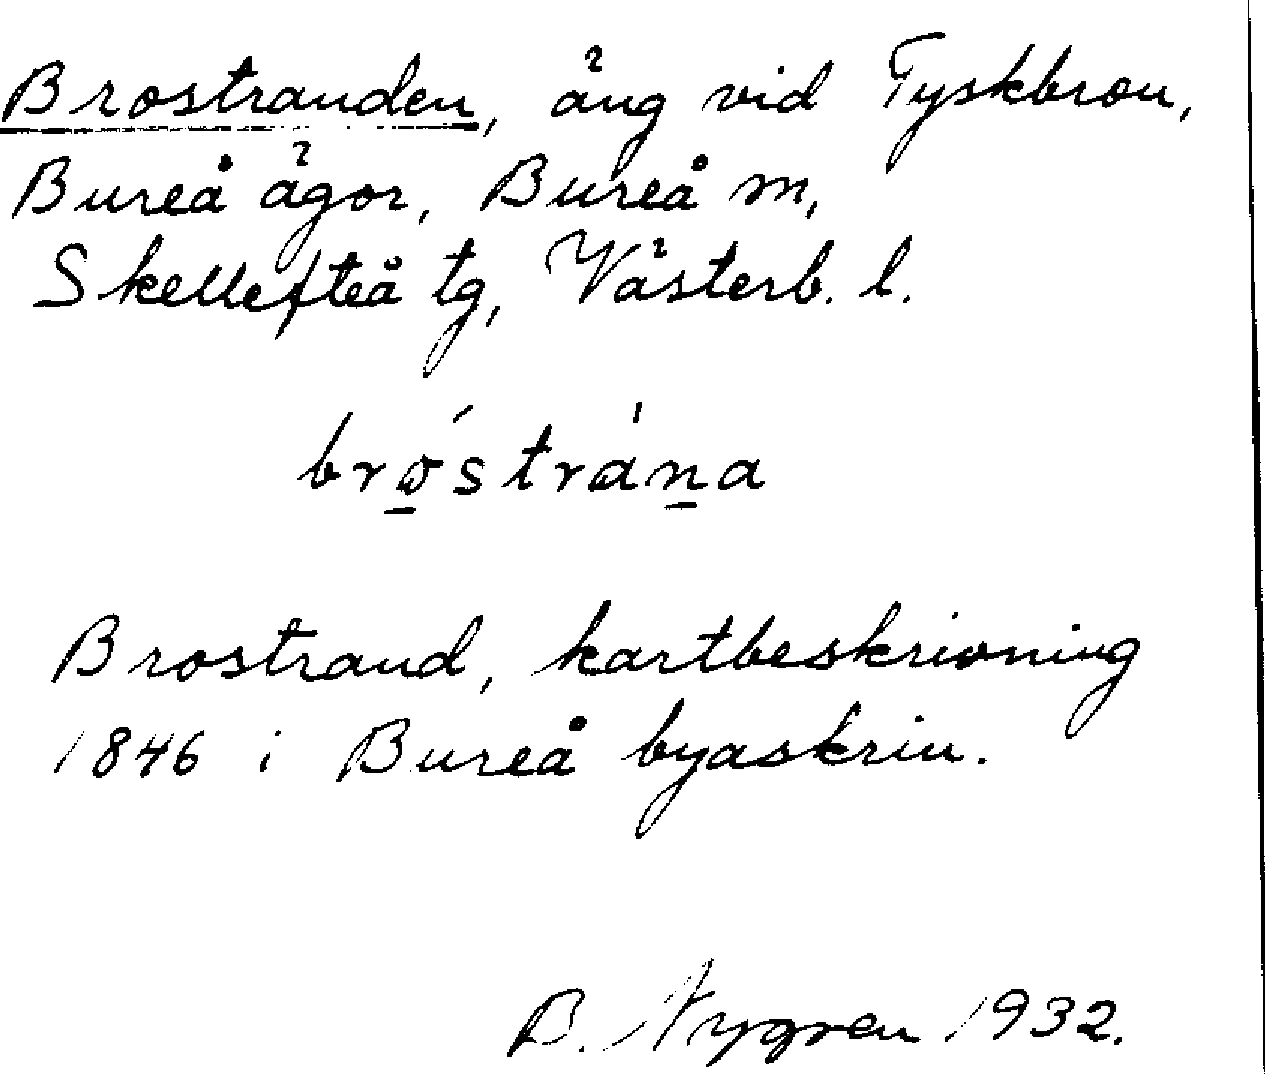 Brostranden, äng vid Tyskbron,
Bureå ägor, Bureå m,
Skellefteå tg, Västerb. l.
bró̲strá̍n̲a
Brostrand, kartbeskrivning
1846 i Bureå byaskrin.
B. Nygren 1932.